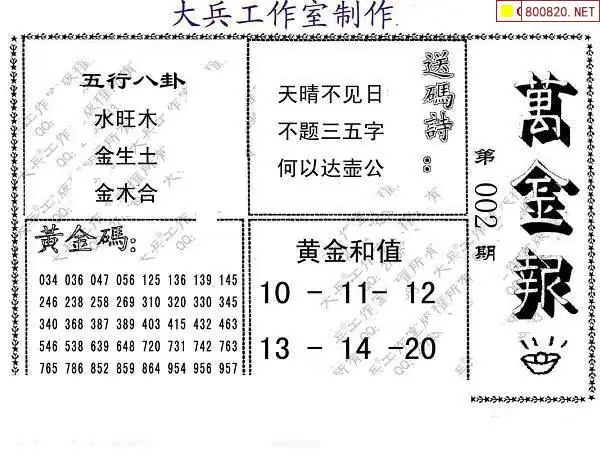 大兵工作室制作
800820.NET
五行八卦
水旺木
金生土
金木合
送碼詩：
天晴不见日
不题三五字
何以达壶公
萬金報
第002期
黃金碼：
034 036 047 056 125 136 139 145
246 238 258 269 310 320 330 345
340 368 387 389 403 415 432 463
546 538 639 648 720 731 742 763
765 786 852 859 864 954 956 957
黄金和值
10 - 11- 12
13 - 14 -20